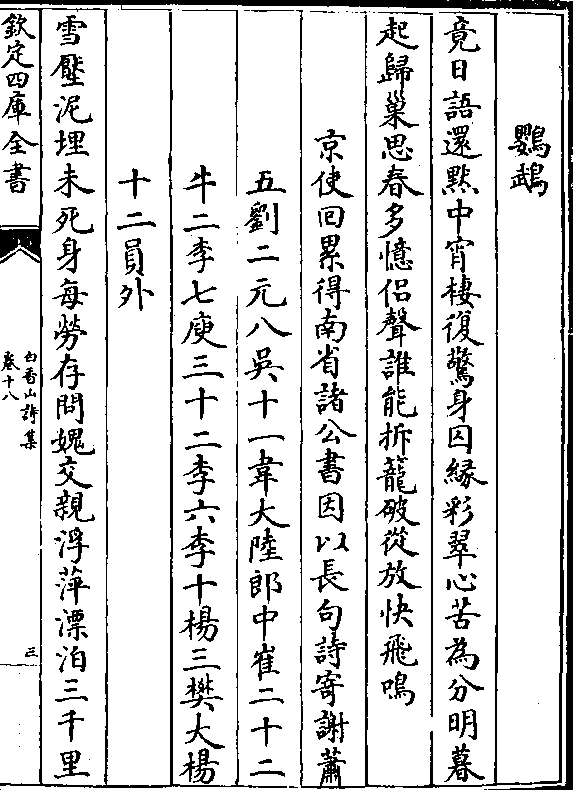 鸚鵡
竟日語還黙中宵棲復驚身囚緣彩翠心苦為分明暮
起歸巢思春多憶侣聲誰能拆籠破從放快飛鳴
京使回累得南省諸公書因以長句詩寄謝蕭
五劉二元八吳十一韋大陸郎中崔二十二
牛二李七庾三十二李六李十楊三樊大楊
十二員外
雪壓泥埋未死身每勞存問媿交親浮萍漂泊三千里
欽定四庫全書
白香山詩集
卷十八
三